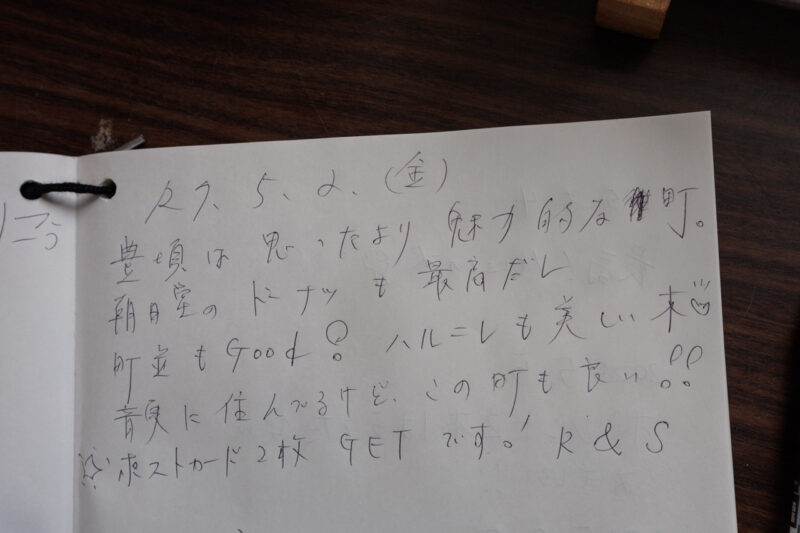 R7、5、2、(金)
豊頃は思ったより魅力的な町。
朝日堂のドーナツも最高だし
町並もGood! ハルニレも美しい木
音更に住んでるけど、この町も良い!!
ポストカード2枚GETです! K & S